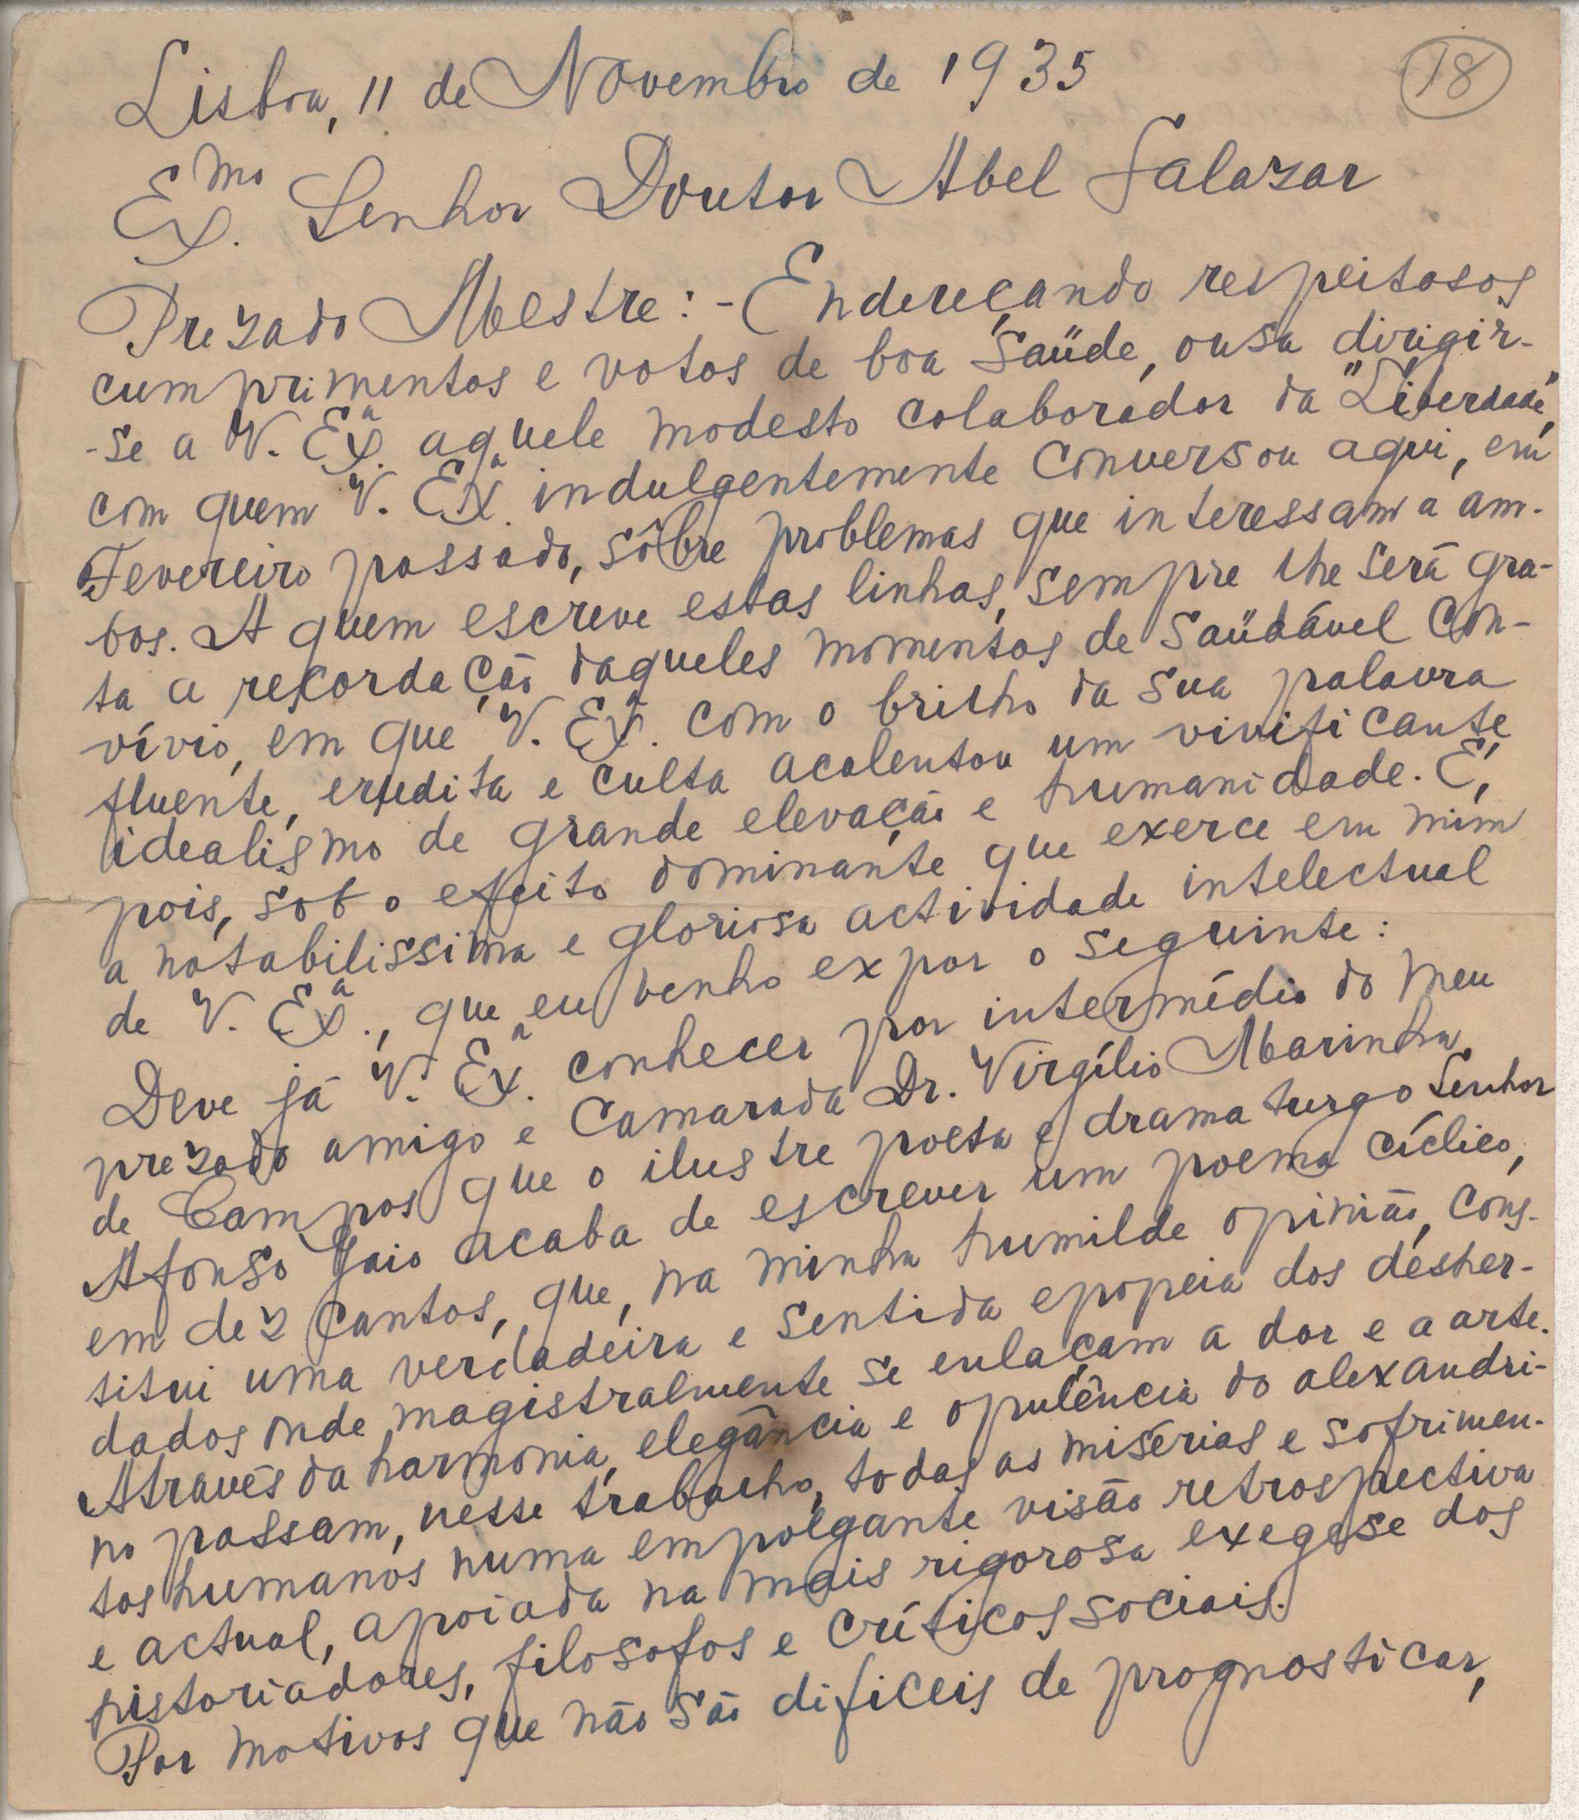 18
Lisboa, 11 de Novembro de 1935
Ex.mo Senhor Doutor Abel Salazar
Prezado Mestre: - Endereçando respeitosos
cumprimentos e votos de boa saüde, ousa dirigir-
-se a V. Ex.a aquele modesto colaborador da "Liberdade",
com quem V. Ex.a indulgentemente conversou aqui, em
Fevereiro passado, sôbre problemas que interessam a am-
bos. A quem escreve estas linhas, sempre lhe será gra-
ta a recordação daqueles momentos de saüdável con-
vívio, em que V. Ex.a com o brilho da sua palavra
fluente, erudita e culta acalentou um vivificante
idealismo de grande elevação e humanidade. É,
pois, sob o efeito dominante que exerce em mim
a notabilissima e gloriosa actividade intelectual
de V. Ex.a, que eu venho expor o seguinte:
Deve já V. Ex.a conhecer por intermédio do meu
prezado amigo e camarada Dr. Virgílio Marinha
de Campos que o ilustre poeta e dramaturgo Senhor
Afonso Gaio acaba de escrever um poema cíclico,
em dez cantos, que, na minha humilde opinião, cons-
titui uma verdadeira e sentida epopeia dos desher-
dados onde magistralmente se enlaçam a dor e a arte.
Através da harmonia, elegância e opulência do alexandri-
no passam, nesse trabalho, todas as misérias e sofrimen-
tos humanos numa empolgante visão retrospectiva
e actual, apoiada na mais rigorosa exegese dos
historiadores, filosofos e críticos sociais.
Por motivos que não são dificeis de prognosticar,